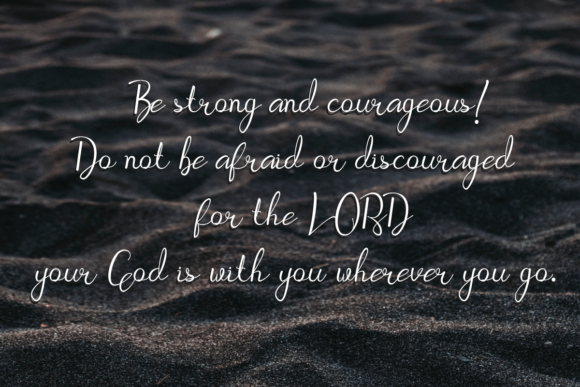 Be strong and courageous!
Do not be afraid or discouraged
for the LORD
your God is with you wherever you go.